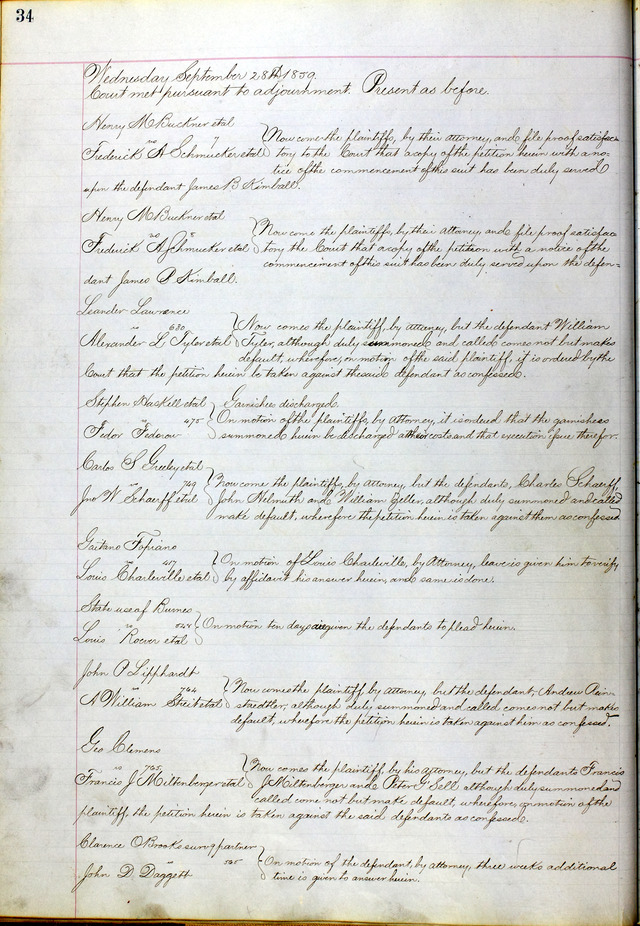 34
Wednesday September 28th 1859.
Court met pursuant to adjournment. Present as before.
Henry M Buckner etal
vs 7
Frederick A Schmucker etal
Now come the plaintiffs, by their attorney, and file proof satisfac=
tory to the Court that a copy of the petition herein with a no=
tice of the commencement of this suit has been duly served
upon the defendant James B Kimball.
Henry M Buckner etal
vs 8
Frederick A Schmucker etal
Now come the plaintiffs, by their Attorney, and file proof satisfac=
tory the Court that a copy of the petition with a notice of the
commencement of this suit has been duly served upon the defen=
dant James P Kimball.
Leander Lawrence
vs 630
Alexander L Tyler etal
Now comes the plaintiff, by attorney, but the defendant William
Tyler, although duly summoned and called comes not but makes
default, wherefore, on motion of the said plaintiff it is ordered by the
Court that the petition herein be taken against the said defendant as confessed.
Stephen Haskell etal
vs 475
Fedor Federow
Garnishees discharged
On motion of the plaintiffs, by attorney, it is ordered that the garnishees
summoned herein be discharged at their costs and that execution issue therefor.
Carlos S Greeley etal
vs 749
Jno W Schaeff etal
Now come the plaintiffs, by attorney, but the defendants, Charles Schaeff,
John Helmuth and William Zeller, although duly summoned and called
make default, wherefore the petition herein is taken against them as confessed
Gaetano Topiano
vs 417
Louis Charleville etal
On motion of Louis Charleville, by Attorney, leave is given him to verify
by affidavit his answer herein, and same is done.
State use of Burnes
vs
Louis Roever etal
On motion ten days are given the defendants to plead herein.
John P Lipphardt
vs 744
A William Streit etal
Now comes the plaintiff by attorney but the defendant, Andrew
although duly summoned and called comes not but makes
default, wherefore the petition herein is taken against him as confessed.
Geo Clemens
vs 725
Francis J Miltenberger etal
Now comes the plaintiff, by his attorney, but the defendants Francis
J Miltenberger and Peter G Sell although duly summoned and
called come not but make default, wherefore, on motion of the
plaintiff, the petition herein is taken against the said defendants as confessed.
Clarence O Brooks survg partner
vs 505
John D Daggett
On motion of the defendant, by attorney, three weeks additional
time is given to answer herein.